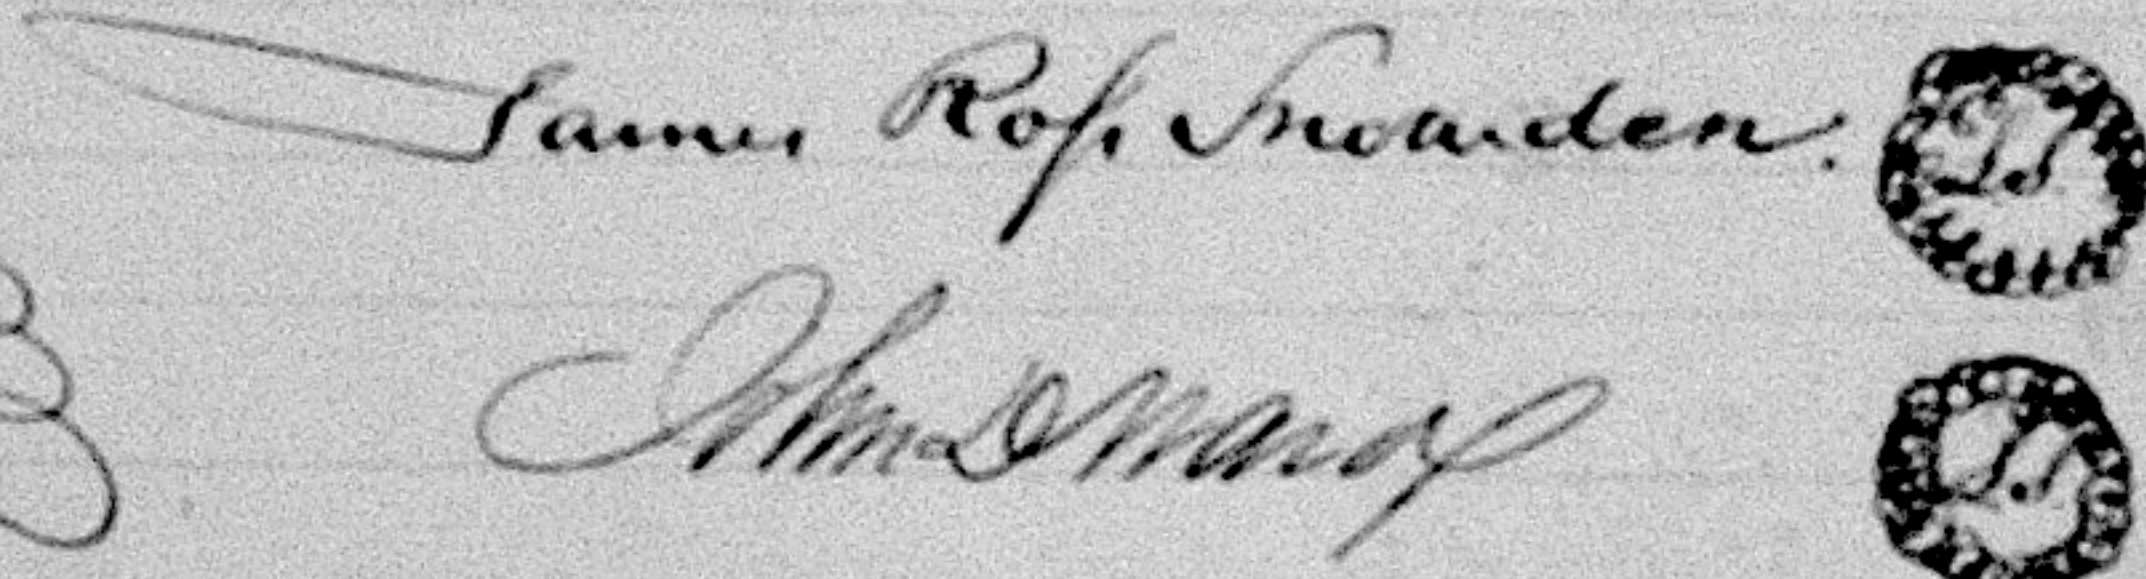 James Ross Snowden. LS
John D Maroy LS